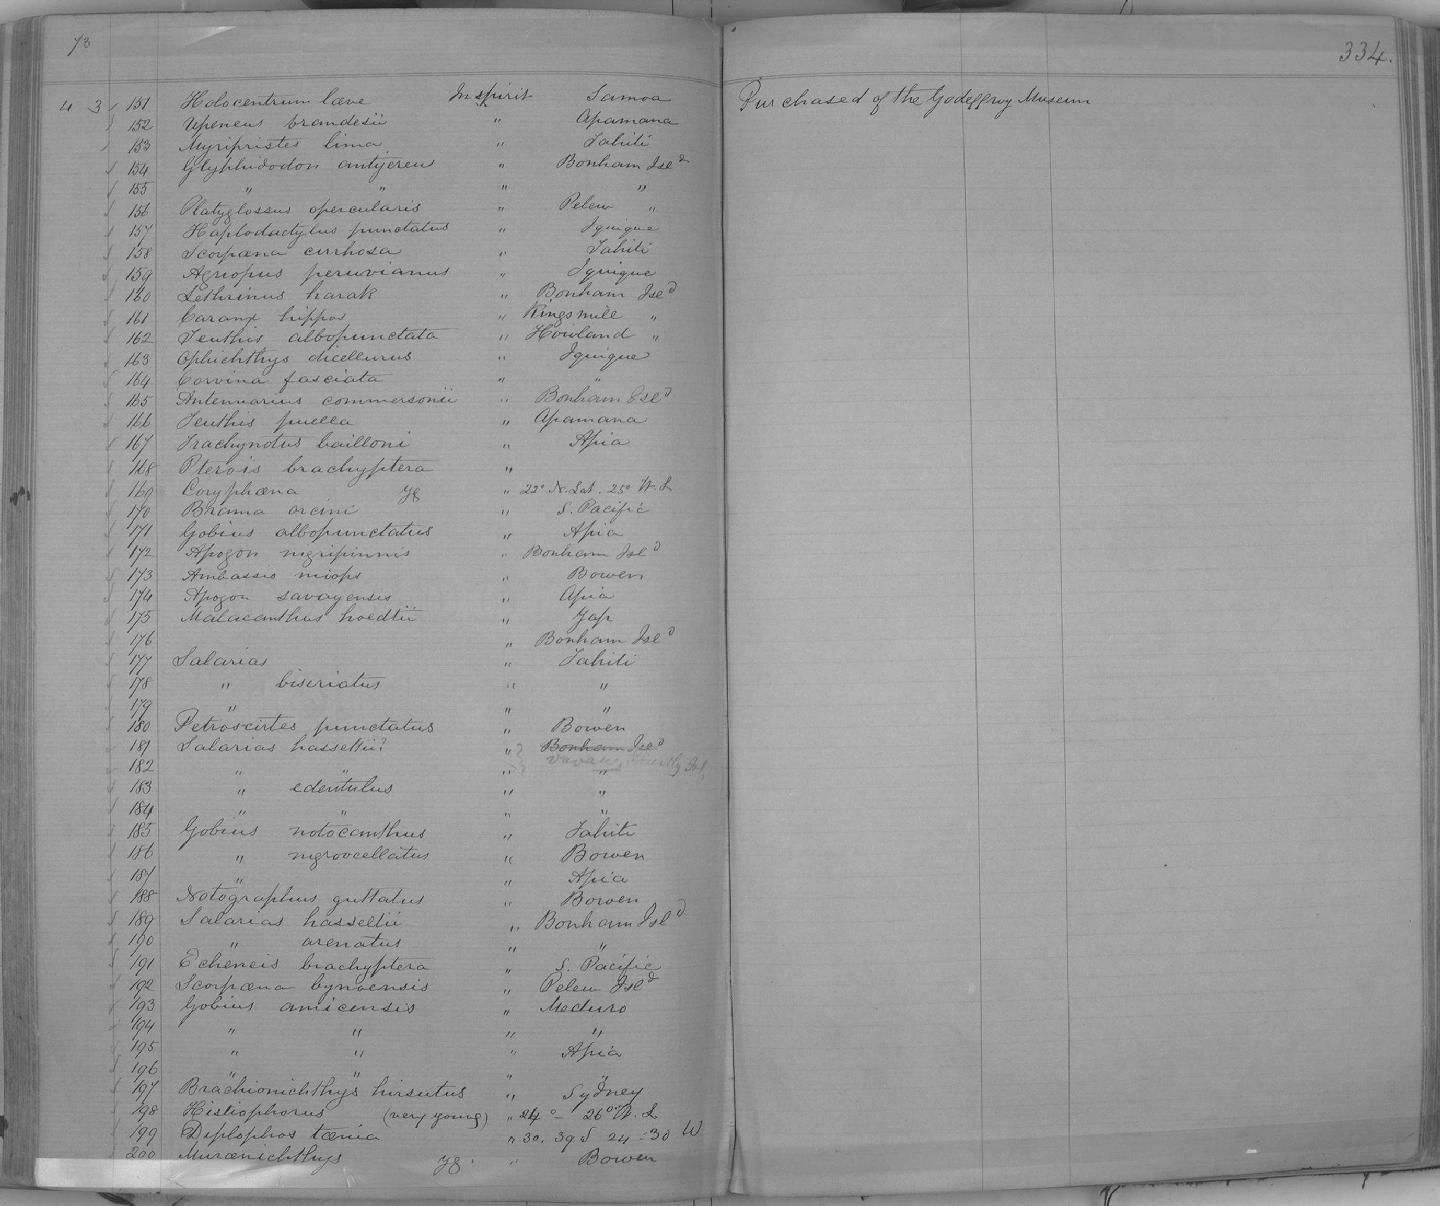 73
334.
4 3 151 Holocentrum læve In spirit Samoa Purchased of the Godeffroy Museum
152 Upeneus brandesii " Apamana
153 Myripristes lima " Tahiti
154 Glyphidodon antjereus " Bonham Isld
155 " " " "
156 Platyglossus opercularis " Pelew "
157 Haplodactylus punctatus " Iquique
158 Scorpæna cirrhosa " Tahiti
159 Agriopus peruvianus " Iquique
160 Lethrinus harak " Bonham Isld
161 Caranx hippos " Kingsmile "
162 Teuthis albopunctata " Howland "
163 Ophichthys dicellurus " Iquique
164 Corvina fasciata " "
165 Antennarius commersonii " Bonham Isld
166 Teuthis puella " Apamana
167 Trachynotus bailloni " Apia
168 Pterois brachyptera "
169 Coryphæna yg " 22° N. Lat. 25° W. L
170 Brama orcini " S. Pacific
171 Gobius albopunctatus " Apia
172 Apogon nigripinnis " Bonham Isld
173 Ambassis miops " Bowen
174 Apogon savayensis " Apia
175 Malacanthus hoedtii " Yap
176 " Bonham Isld
177 Salarias " Tahiti
178 " biseriatus " "
179 " " "
180 Petroscirtes punctatus " Bowen
181 Salarias hasseltii? " Bonham Isld
182 " " " " Vavau, Friendly Isl.
183 " edentulus " "
184 " " " "
185 Gobius notocanthus " Tahiti
186 " nigroocellatus " Bowen
187 " " Apia
188 Notographus guttatus " Bowen
189 Salarias hasseltii " Bonham Isld
190 " arenatus " "
191 Echeneis brachyptera " S. Pacific
192 Scorpæna bynoensis " Pelew Isld
193 Gobius amicensis " Meduro
194 " " " "
195 " " " Apia
196 " " " "
197 Brachionichthys hirsutus " Sydney
198 Histiophorus (very young) " 24° – 26° W. L
199 Diplophos tænia " 30. 39 S 24 - 30 W
200 Murænichthys yg. " Bowen